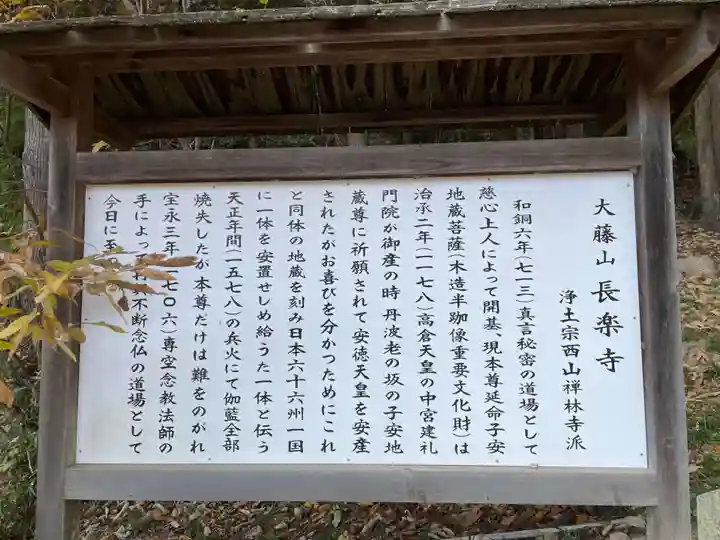 大藤山 長楽寺
浄土宗西山禅林寺派
和銅六年(七一三)真言秘密の道場として
慈心上人によって開基、現本尊延命子安
地蔵菩薩(木造半跏像重要文化財)は
治承二年(一一七八)高倉天皇の中宮建礼
門院が御産の時丹波老の坂の子安地
蔵尊に祈願されて安徳天皇を安産
されたがお喜びを分かつためにこれ
と同体の地蔵を刻み日本六十六州一国
に一体を安置せしめ給うた一体と伝う
天正年間(一五七八)の兵火にて伽藍全部
焼失したが本尊だけは難をのがれ
宝永三年(一七〇六)専空念教法師の
手によっ 不断念仏の道場として
今日に至